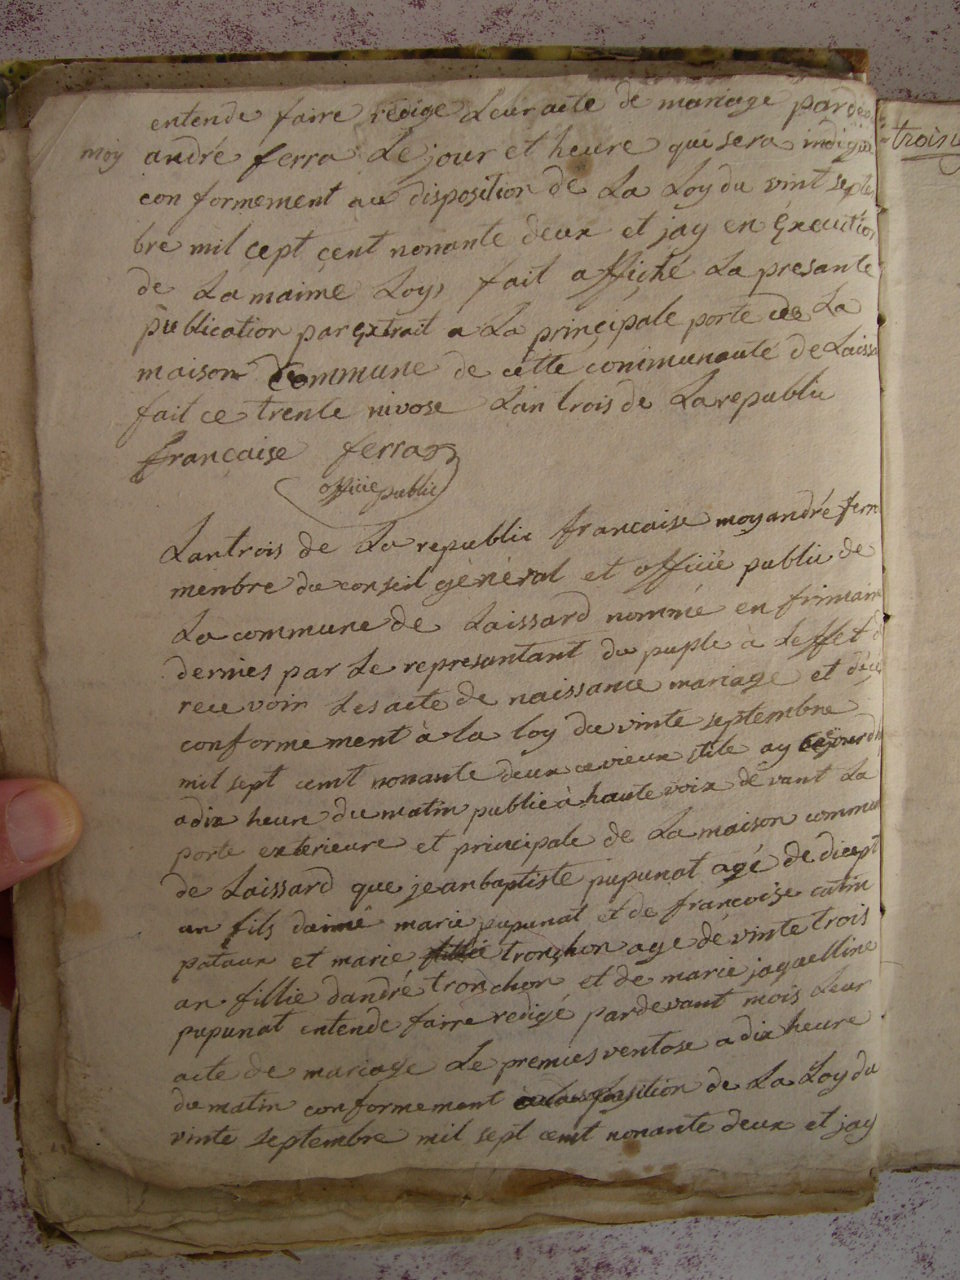 entende faire redige Leur acte de mariage pardev
moy andré ferra Le jour et heure qui sera indiqué
conformement aux disposition de La Loy du vint septe
bre mil cept cent nonante deux et jay en Éxecution
de La maime Loy, fait affiché La presante
publication par extrait a La principale porte de La
maison Commune de cette communauté de Laissa
fait ce trente nivose Lan trois de La republic
française ferra
officie public
Lan trois de La republic francaise moy andré ferra
menbre du conseil géneral et officié public de
La commune de Laissard nommé en frimaire
dernies par Le represantant du puple à Leffet d
recevoir Les acte de naissance mariage et décé
conformement à la loy du vinte septembre
mil sept cent nonante deux ce vieux stile ay
a dix heure du matin publié à haute voix devant La
porte exterieure et principale de La maison commun
de Laissard que jean baptiste pupunat agé de dicept
an fils daimé marie pupunat et de francoise catin
pataux et marie tronchon age de vinte trois
an fillie dandré tronchon et de marie jaquelline
pupunat entende faire redigé pardevant mois Leur
acte de mariage Le premies ventose a dix heure
du matin conformement de La Loy du
vinte septembre mil sept cent nonante deux et jay
trois